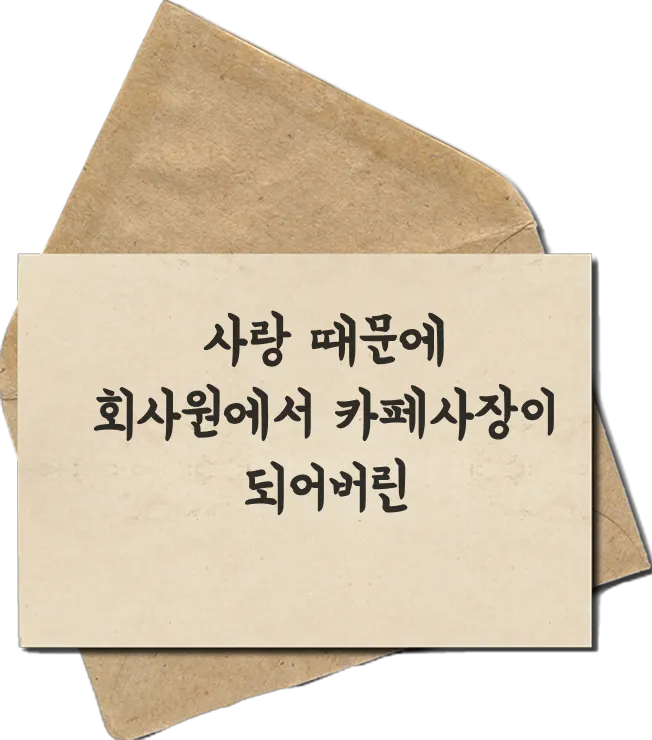 사랑 때문에
회사원에서 카페사장이
되어버린